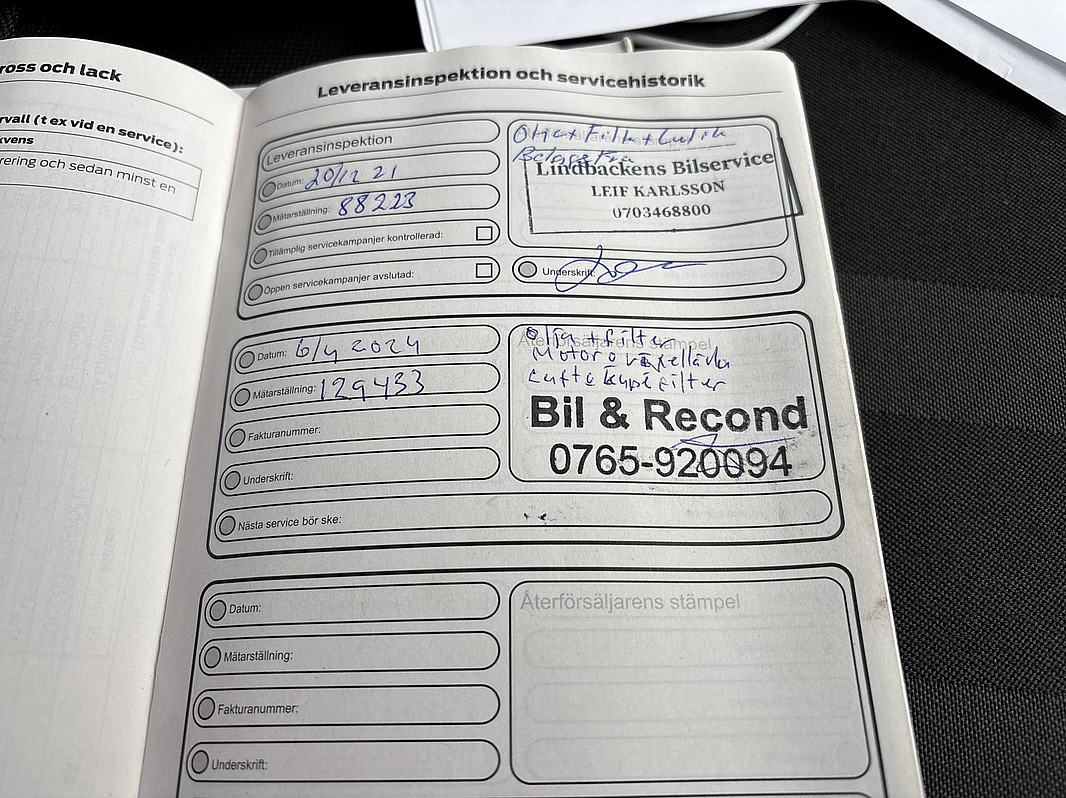 ross och lack
rvall (t ex vid en service):
kvens
rering och sedan minst en
Leveransinspektion och servicehistorik
Leveransinspektion
Datum: 20/12 21
Mätarställning: 88223
Tillämplig servicekampanjer kontrollerad:
Öppen servicekampanjer avslutad:
Olja + Filter +
Lindbackens Bilservice
LEIF KARLSSON
0703468800
Underskrift:
Datum: 6/4 2024
Mätarställning: 129433
Fakturanummer:
Underskrift:
Nästa service bör ske:
Återförsäljarens stämpel
Olja + filter
Motor o växellåda
Luft o kupéfilter
Bil & Recond
0765-920094
Datum:
Mätarställning:
Fakturanummer:
Underskrift:
Återförsäljarens stämpel